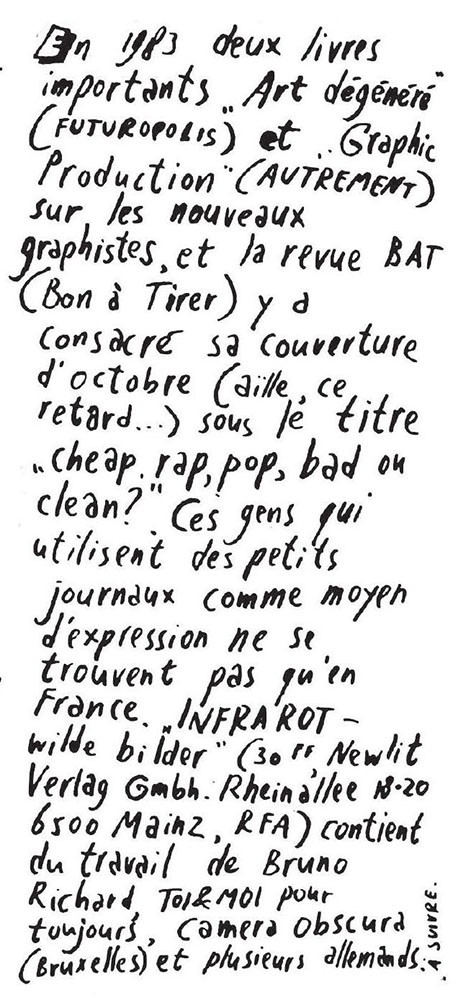 En 1983 deux livres
importants „Art dégénéré"
(FUTUROPOLIS) et „Graphic
Production" (AUTREMENT)
sur les nouveaux
graphistes, et la revue BAT
(Bon à Tirer) y a
consacré sa couverture
d'octobre (aïlle, ce
retard...) sous le titre
„cheap. rap, pop, bad ou
clean?" Ces gens qui
utilisent des petits
journaux comme moyen
d'expression ne se
trouvent pas qu'en
France. „INFRAROT –
wilde bilder" (30 FF, Newlit
Verlag Gmbh. Rheinallee 18-20
6500 Mainz, RFA) contient
du travail de Bruno
Richard, TOI&MOI pour
toujours, Camera Obscura
(Bruxelles) et plusieurs allemands.
A SUIVRE.